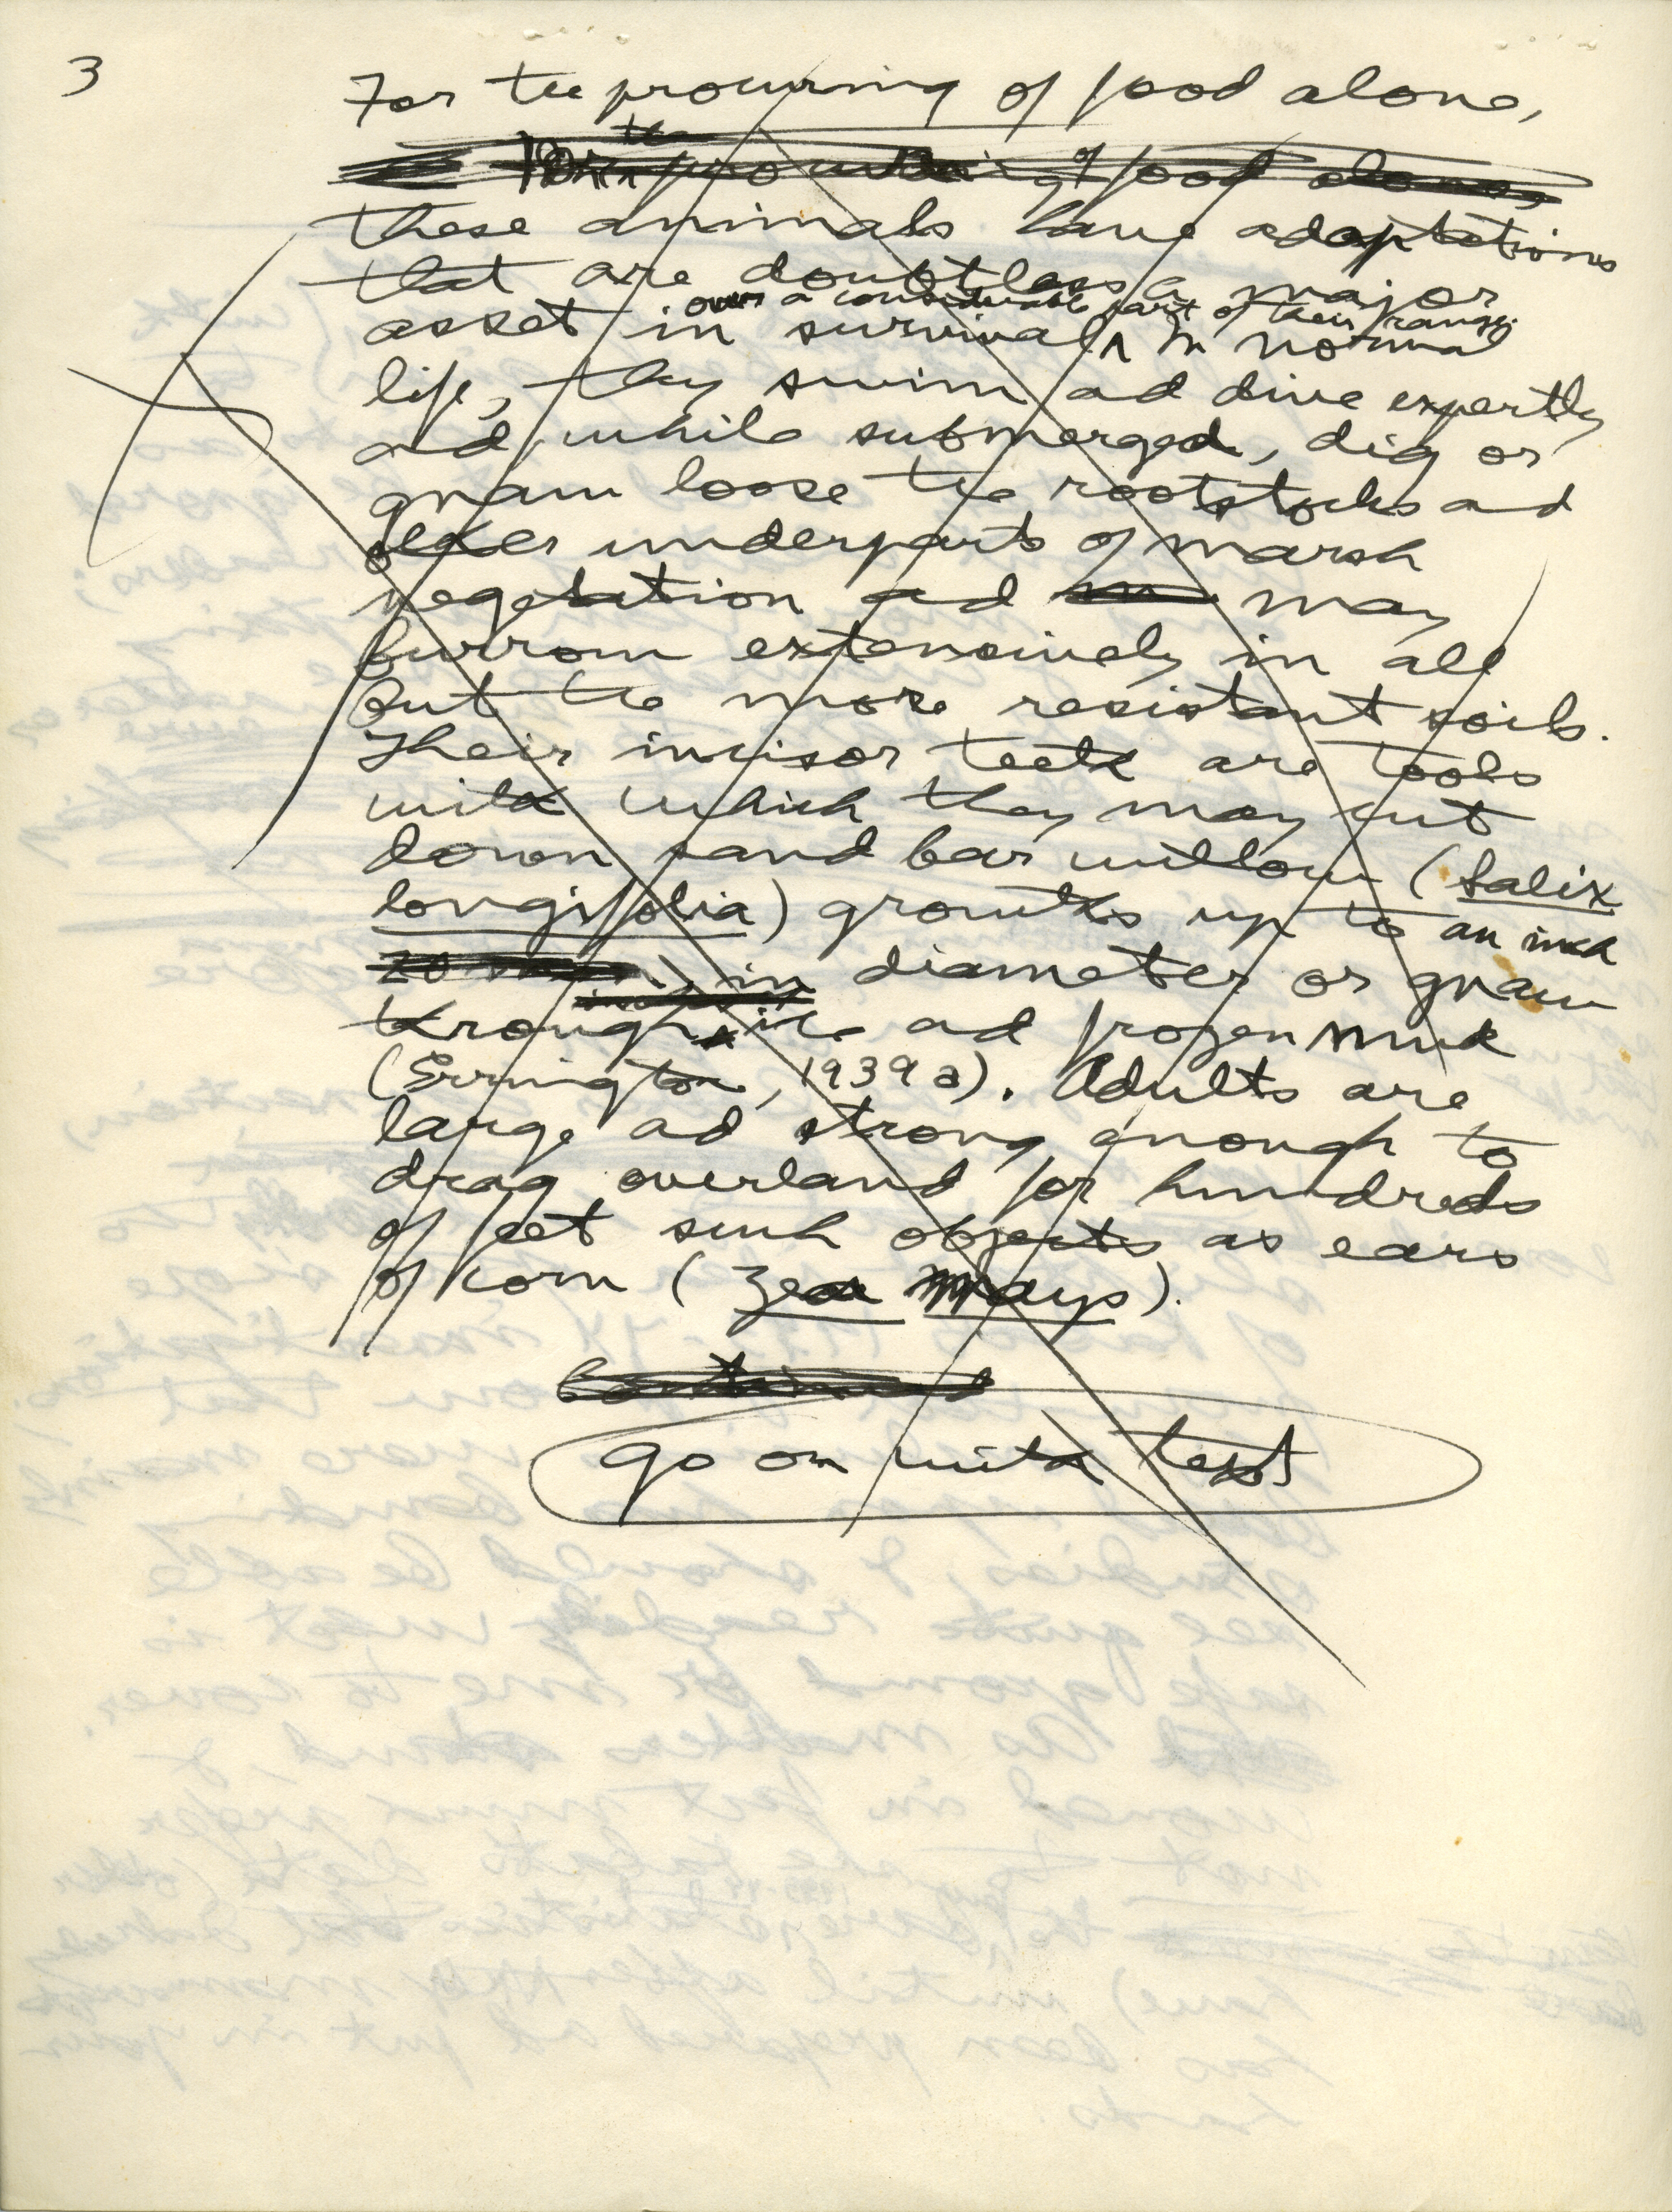 3
For the procuring of food alone,
the
procuring of food alone,
these animals have adaptations
that are doubtless a major
over a considerable part of their range.
asset in survival ^ In normal
life, they swim and dive expertly
and, while submerged, dig or
gnaw loose the rootstocks and
other underparts of marsh
vegetation and may
burrow extensively in all
but the more resistant soils.
Their incisor teeth are tools
with which they may cut
down sand bar willow (Salix
longifolia) growths up to an inch
in diameter or gnaw
through ice and frozen muck
(Errington, 1939a). Adults are
large and strong enough to
drag overland for hundreds
of feet such objects as ears
of corn (Zea Mays).
go on with text